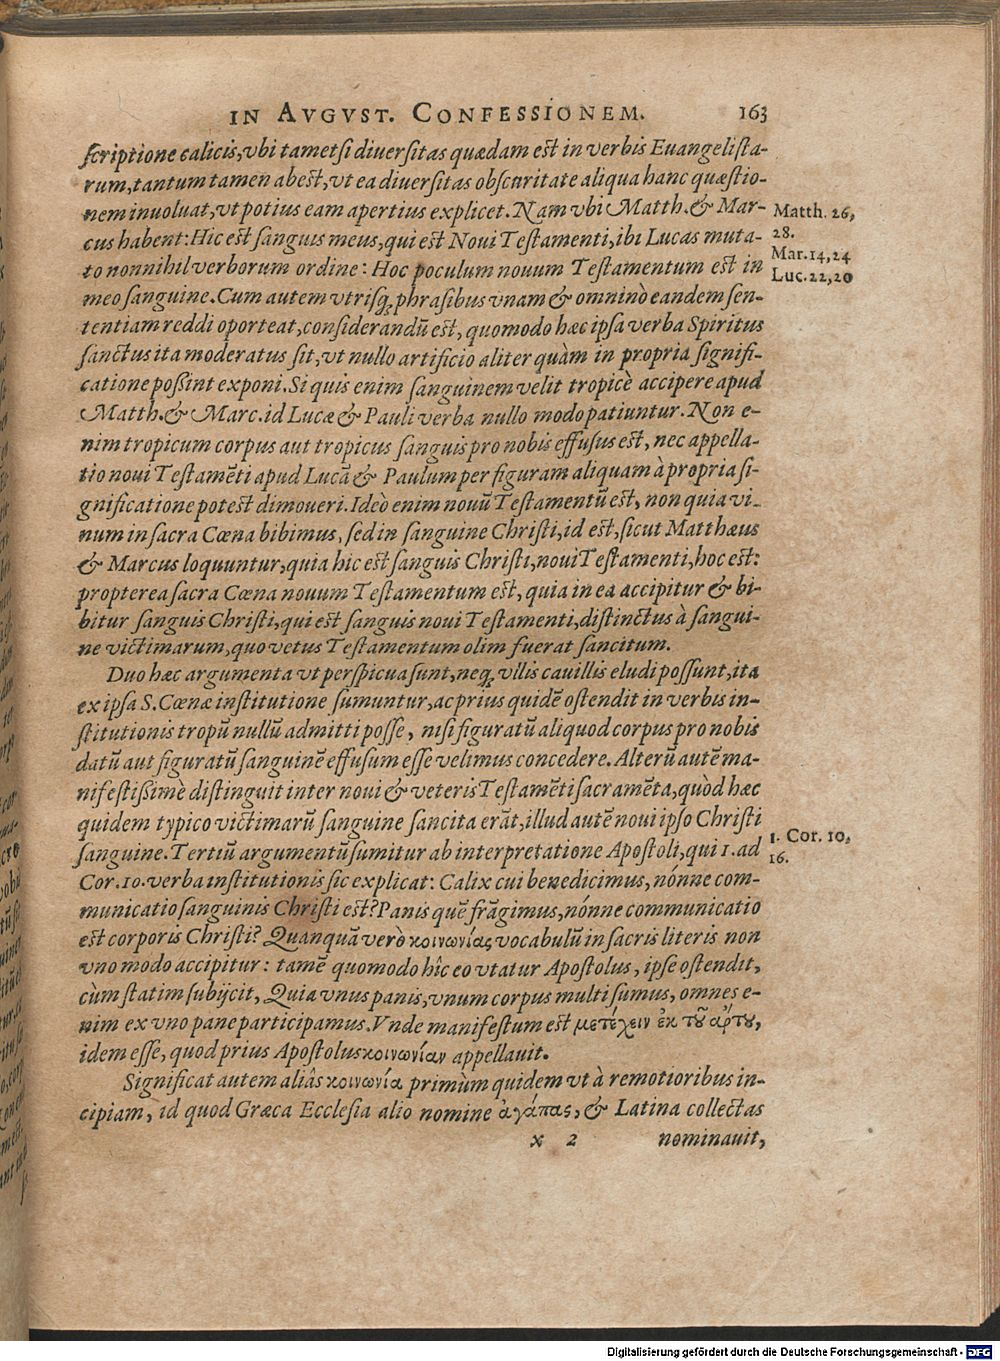 IN AVGVST. CONFESSIONEM. 163
scriptione calicis, vbi tametsi diuersitas quædam est in verbis Euangelista-
rum, tantum tamen abest, vt ea diuersitas obscuritate aliqua hanc quæstio-
nem inuoluat, vt potius eam apertius explicet. Nam vbi Matth. & Mar-
cus habent: Hic est sanguis meus, qui est Noui Testamenti, ibi Lucas muta-
to nonnihil verborum ordine: Hoc poculum nouum Testamentum est in
meo sanguine. Cum autem vtrisq; phrasibus vnam & omninò eandem sen-
tentiam reddi oporteat, considerandū est, quomodo hæc ipsa verba Spiritus
sanctus ita moderatus sit, vt nullo artificio aliter quàm in propria signifi-
catione poßint exponi. Si quis enim sanguinem velit tropicè accipere apud
Matth. & Marc. id Lucæ & Pauli verba nullo modo patiuntur. Non e-
nim tropicum corpus aut tropicus sanguis pro nobis effusus est, nec appella-
tio noui Testamēti apud Lucā & Paulum per figuram aliquam à propria si-
gnificatione potest dimoueri. Ideò enim nouū Testamentū est, non quia vi-
num in sacra Cœna bibimus, sed in sanguine Christi, id est, sicut Matthæus
& Marcus loquuntur, quia hic est sanguis Christi, noui Testamenti, hoc est:
propterea sacra Cœna nouum Testamentum est, quia in ea accipitur & bi-
bitur sanguis Christi, qui est sanguis noui Testamenti, distinctus à sangui-
ne victimarum, quo vetus Testamentum olim fuerat sancitum.
Duo hæc argumenta vt perspicua sunt, neq; vllis cauillis eludi possunt, ita
ex ipsa S. Cœnæ institutione sumuntur, ac prius quidē ostendit in verbis in-
stitutionis tropū nullū admitti posse, nisi figuratū aliquod corpus pro nobis
datū aut figuratū sanguinē effusum esse velimus concedere. Alterū autē ma-
nifestißimè distinguit inter noui & veteris Testamēti sacramēta, quòd hæc
quidem typico victimarū sanguine sancita erāt, illud autē noui ipso Christi
sanguine. Tertiū argumentū sumitur ab interpretatione Apostoli, qui 1. ad
Cor. 10. verba institutionis sic explicat: Calix cui benedicimus, nónne com-
municatio sanguinis Christi est? Panis quē frāgimus, nónne communicatio
est corporis Christi? Quanquā verò κοινωνίας vocabulū in sacris literis non
vno modo accipitur: tamē quomodo hîc eo vtatur Apostolus, ipse ostendit,
cùm statim subijcit, Quia vnus panis, vnum corpus multi sumus, omnes e-
nim ex vno pane participamus. Vnde manifestum est μετέχειν ἐκ τοῦ ἄρτου,
idem esse, quod prius Apostolus κοινωνίαν appellauit.
Significat autem aliâs κοινωνία primùm quidem vt à remotioribus in-
cipiam, id quod Græca Ecclesia alio nomine ἀγάπας, & Latina collectas
x 2 nominauit,
Matth. 26,
28.
Mar. 14, 24
Luc. 22, 20
1. Cor. 10,
16.
Digitalisierung gefördert durch die Deutsche Forschungsgemeinschaft - DFG